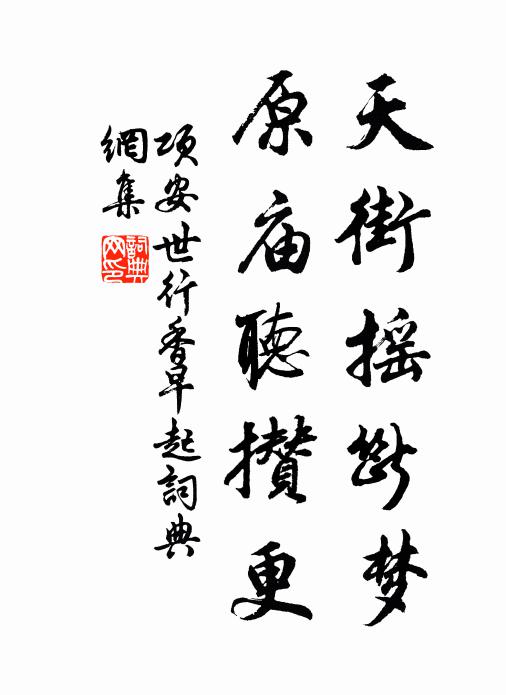 天街摇断梦
原庙聽攢更
项安世行香早起詞典
網集
詞典網印